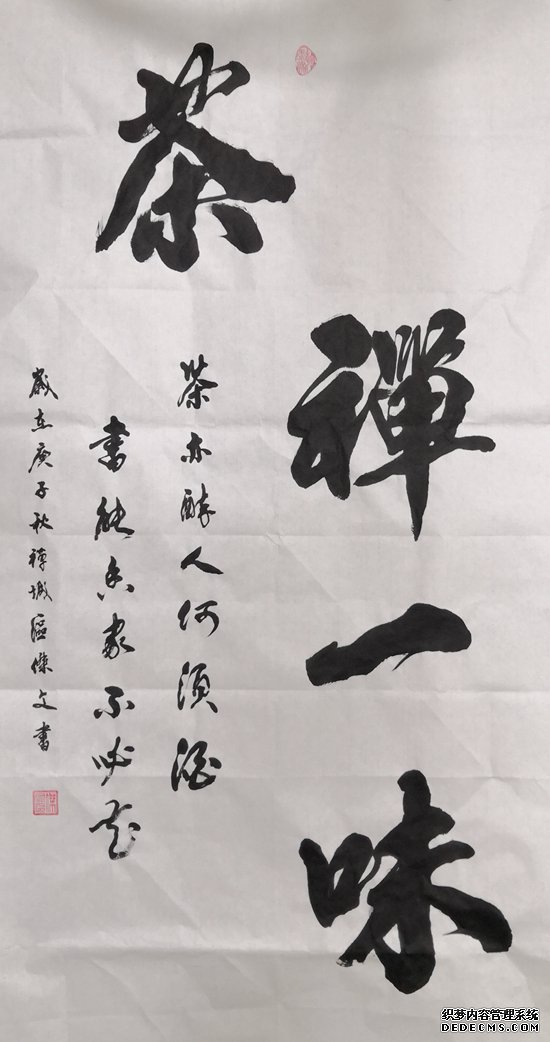 茶
禪一味
茶亦醉人何須酒
書能香家不必花
歲在庚子秋禪城區傑文書
织梦内容管理系统
DEDECMS.COM